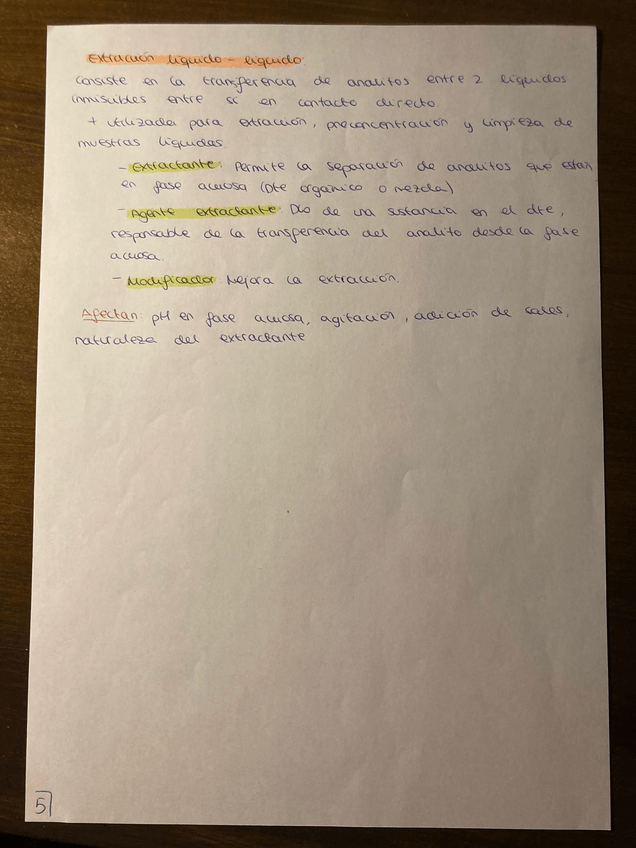 Extracción líquido - líquido
Consiste en la transferencia de analitos entre 2 líquidos
inmisibles entre sí en contacto directo.
+ utilizada para extracción, preconcentración y limpieza de
muestras líquidas.
- Extractante: Permite la separación de analitos que están
en fase acuosa (Dte orgánico o mezcla)
- Agente extractante: Dlo de una sustancia en el dte,
responsable de la transferencia del analito desde la fase
acuosa.
- Modificador: Mejora la extracción.
Afectan: pH en fase acuosa, agitación, adición de sales,
naturaleza del extractante
5